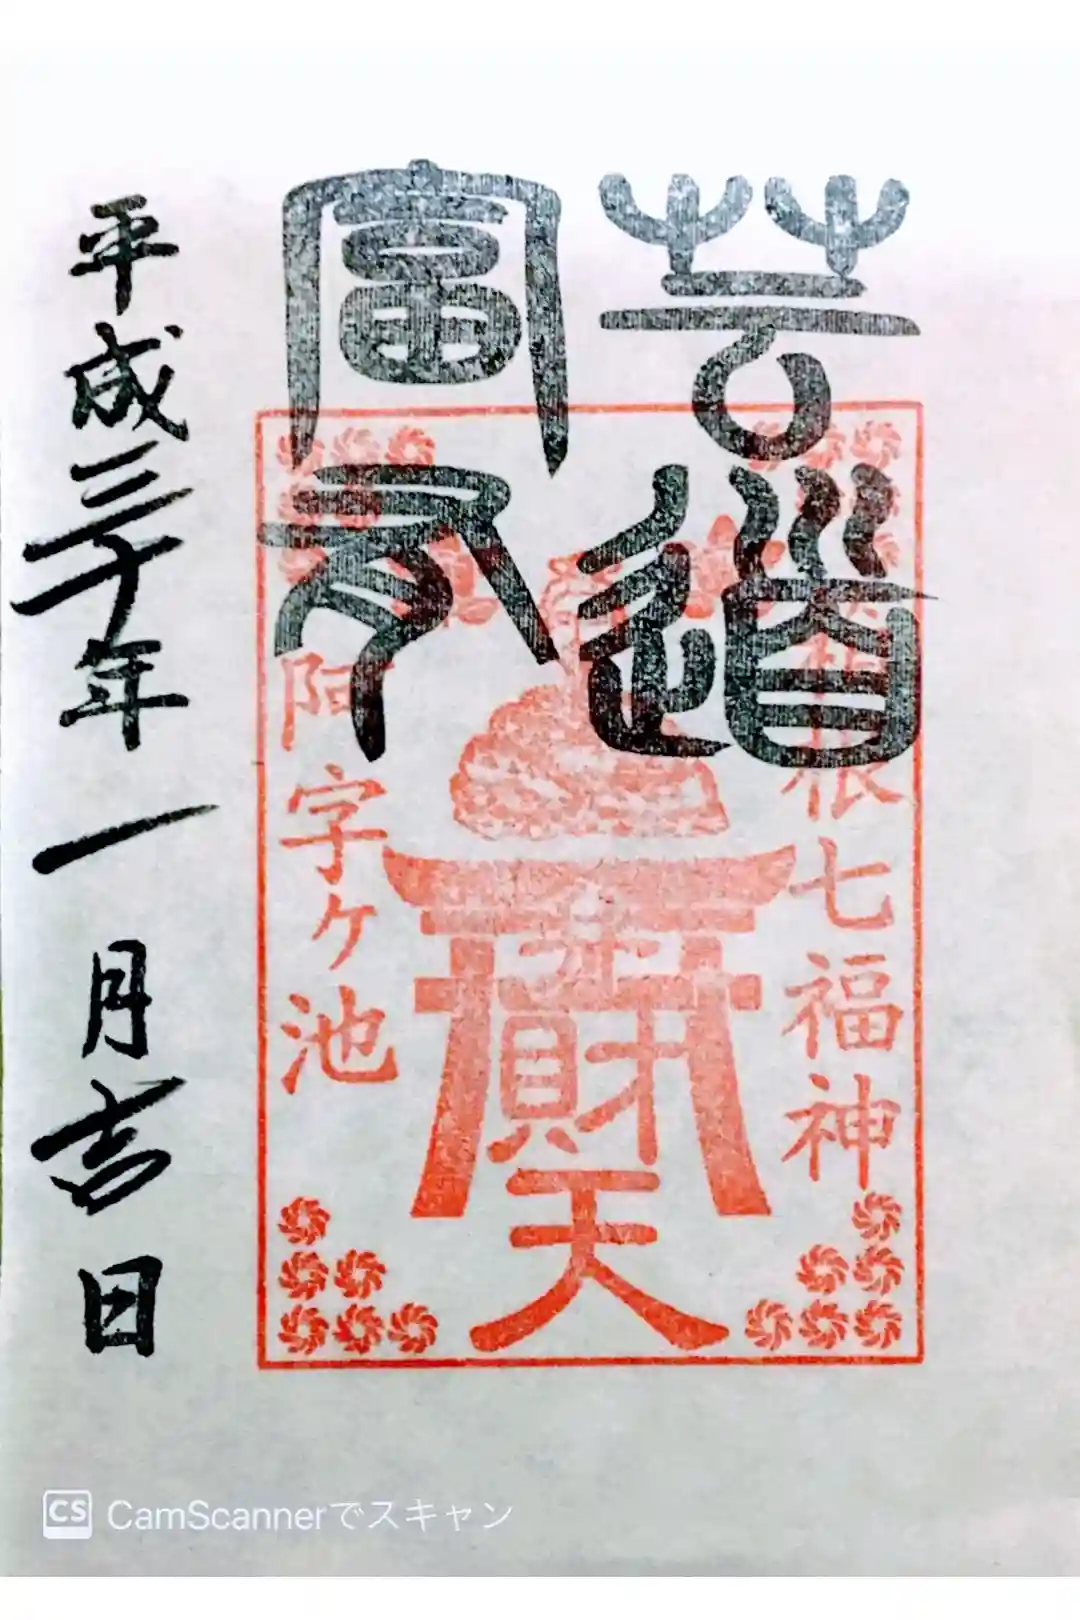 芸道
富
箱根七福神
弁財天
阿字ヶ池
平成三十年一月吉日
CamScannerでスキャン